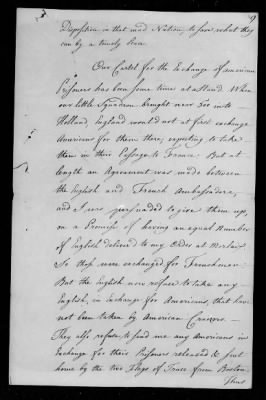 Disposition in that mad Nation, to save what they
can by a timely Peace.
Our Cartel for the Exchange of American
Prisoners has been some time at a Stand. When
our little Squadron brought near 500 into
Holland, England would not at first exchange
Americans for them there, expecting to take
them in their Passage to France. But at
length an Agreement was made between
the English and French Ambassadors,
and I was persuaded to give them up,
on a Promise of having an equal Number
of English delivered to my Order at Morlaix.
So those were exchanged for Frenchmen.
But the English now refuse to take any
English, in Exchange for Americans, that have
not been taken by American Cruizers.
They also refuse to send me any Americans in
Exchange for their Prisoners released & sent
home by the two Flags of Truce from Boston.
Thus